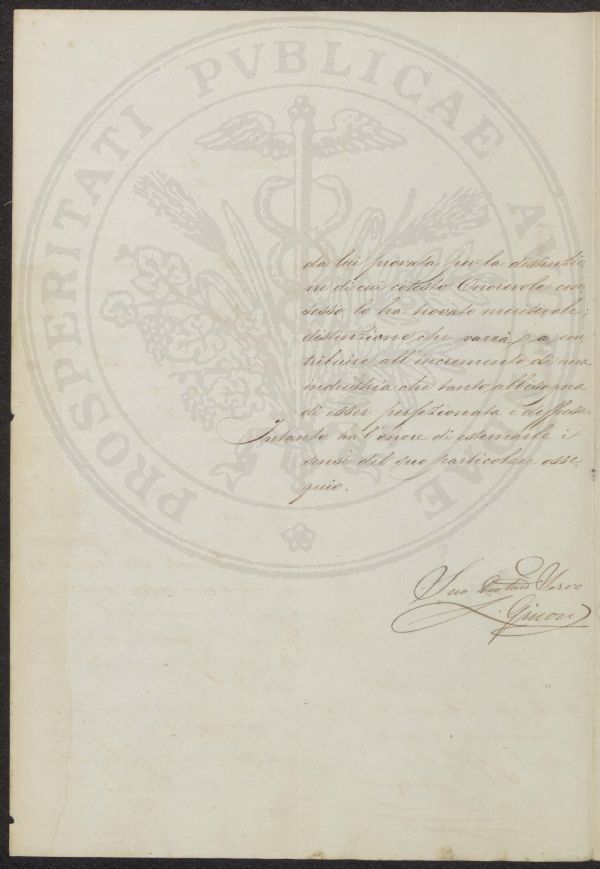 PROSPERITATI PVBLICAE AVGENDAE
da lui provata per la distinzio,
ne di cui cotesto Onorevole con,
sesso lo ha trovato meritevole;
distinzione che varrà a con,
tribuire all'incremento di una
industria che tanto abbisogna
di esser perfezionata e diffusa.
Intanto ha l'onore di esternarle i
sensi del suo particolare osse,
quio.
Suo Servo
L. Ginori